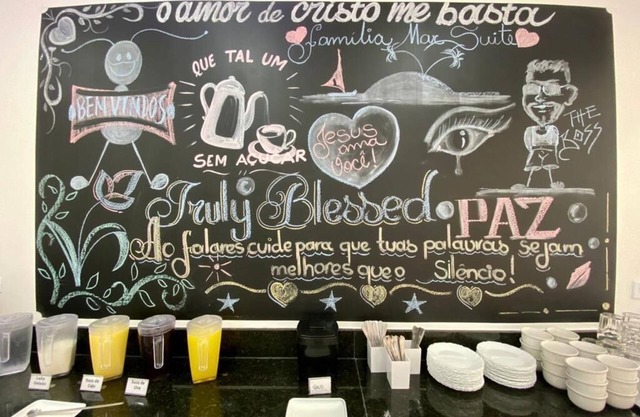 o amor de cristo me basta
familia Mar Suite
BEM VINDOS
QUE TAL UM
SEM AÇUCAR
Jesus
ama
você!
THE
BOSS
Truly Blessed
PAZ
Ao falares, cuide para que tuas palavras sejam
melhores que o Silêncio!
Suco de
Caja
Suco de
Uva
Café